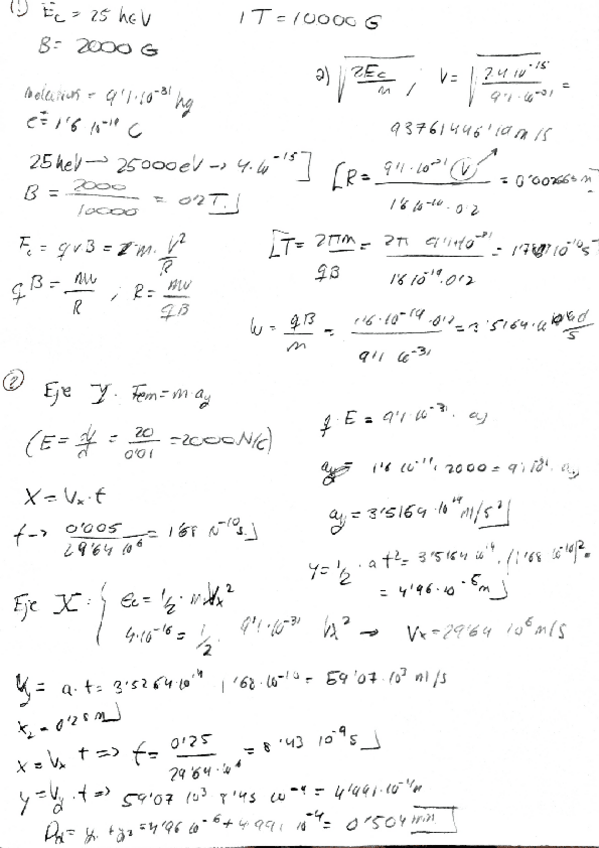 (1) Ec = 25 keV
1 T = 10000 G
B = 2000 G
= 9'1·10^-31 kg
e = 1'6 10^-19 C
25 keV → 25000 eV → 4·10^-15 J
B = 2000/10000 = 0'2 T
Fc = qvB = m·V²/R
qB = mv/R ; R = mv/qB
a) √(2Ec/m) ; V = √(2·4 10^-15/9'1·10^-31) =
93761446'19 m/s
[R = 9'1·10^-31 (V)/1'6 10^-19·0'2 =
[T = 2πm/qB = 2π 9'1·10^-31/1'6 10^-19·0'2 =
W = qB/m = 1'6·10^-19·0'2/9'1 10^-31 =
(2) Eje Y. Fem = m·ay
(E = V/d = 20/0'01 = 2000 N/C)
X = Vx·t
t → 0'005/29'64 10^6 = 1'68 10^-10 s
q·E = 9'1 10^-31·ay
1'6 10^-19·2000 = 9'1 10^-31·ay
ay = 3'5164·10^14 m/s²
y = 1/2·at² = 3'5164 10^14·(1'68 10^-10)² =
= 4'96·10^-6 m
Eje X: { Ec = 1/2·m Vx²
4·10^-16 = 1/2 9'1·10^-31 Vx² → Vx = 29'64 10^6 m/s
Vy = a·t = 3'5264·10^14 1'68·10^-10 = 59'07·10^3 m/s
x2 = 0'25 m
x = Vx t => t = 0'25/29'64·10^6 = 8'43 10^-9 s
y = Vy·t => 59'07 10^3 8'43 10^-9 = 4'991·10^-4 m
= y1 + y2 = 4'96 10^-6 + 4'991 10^-4 = 0'504 mm